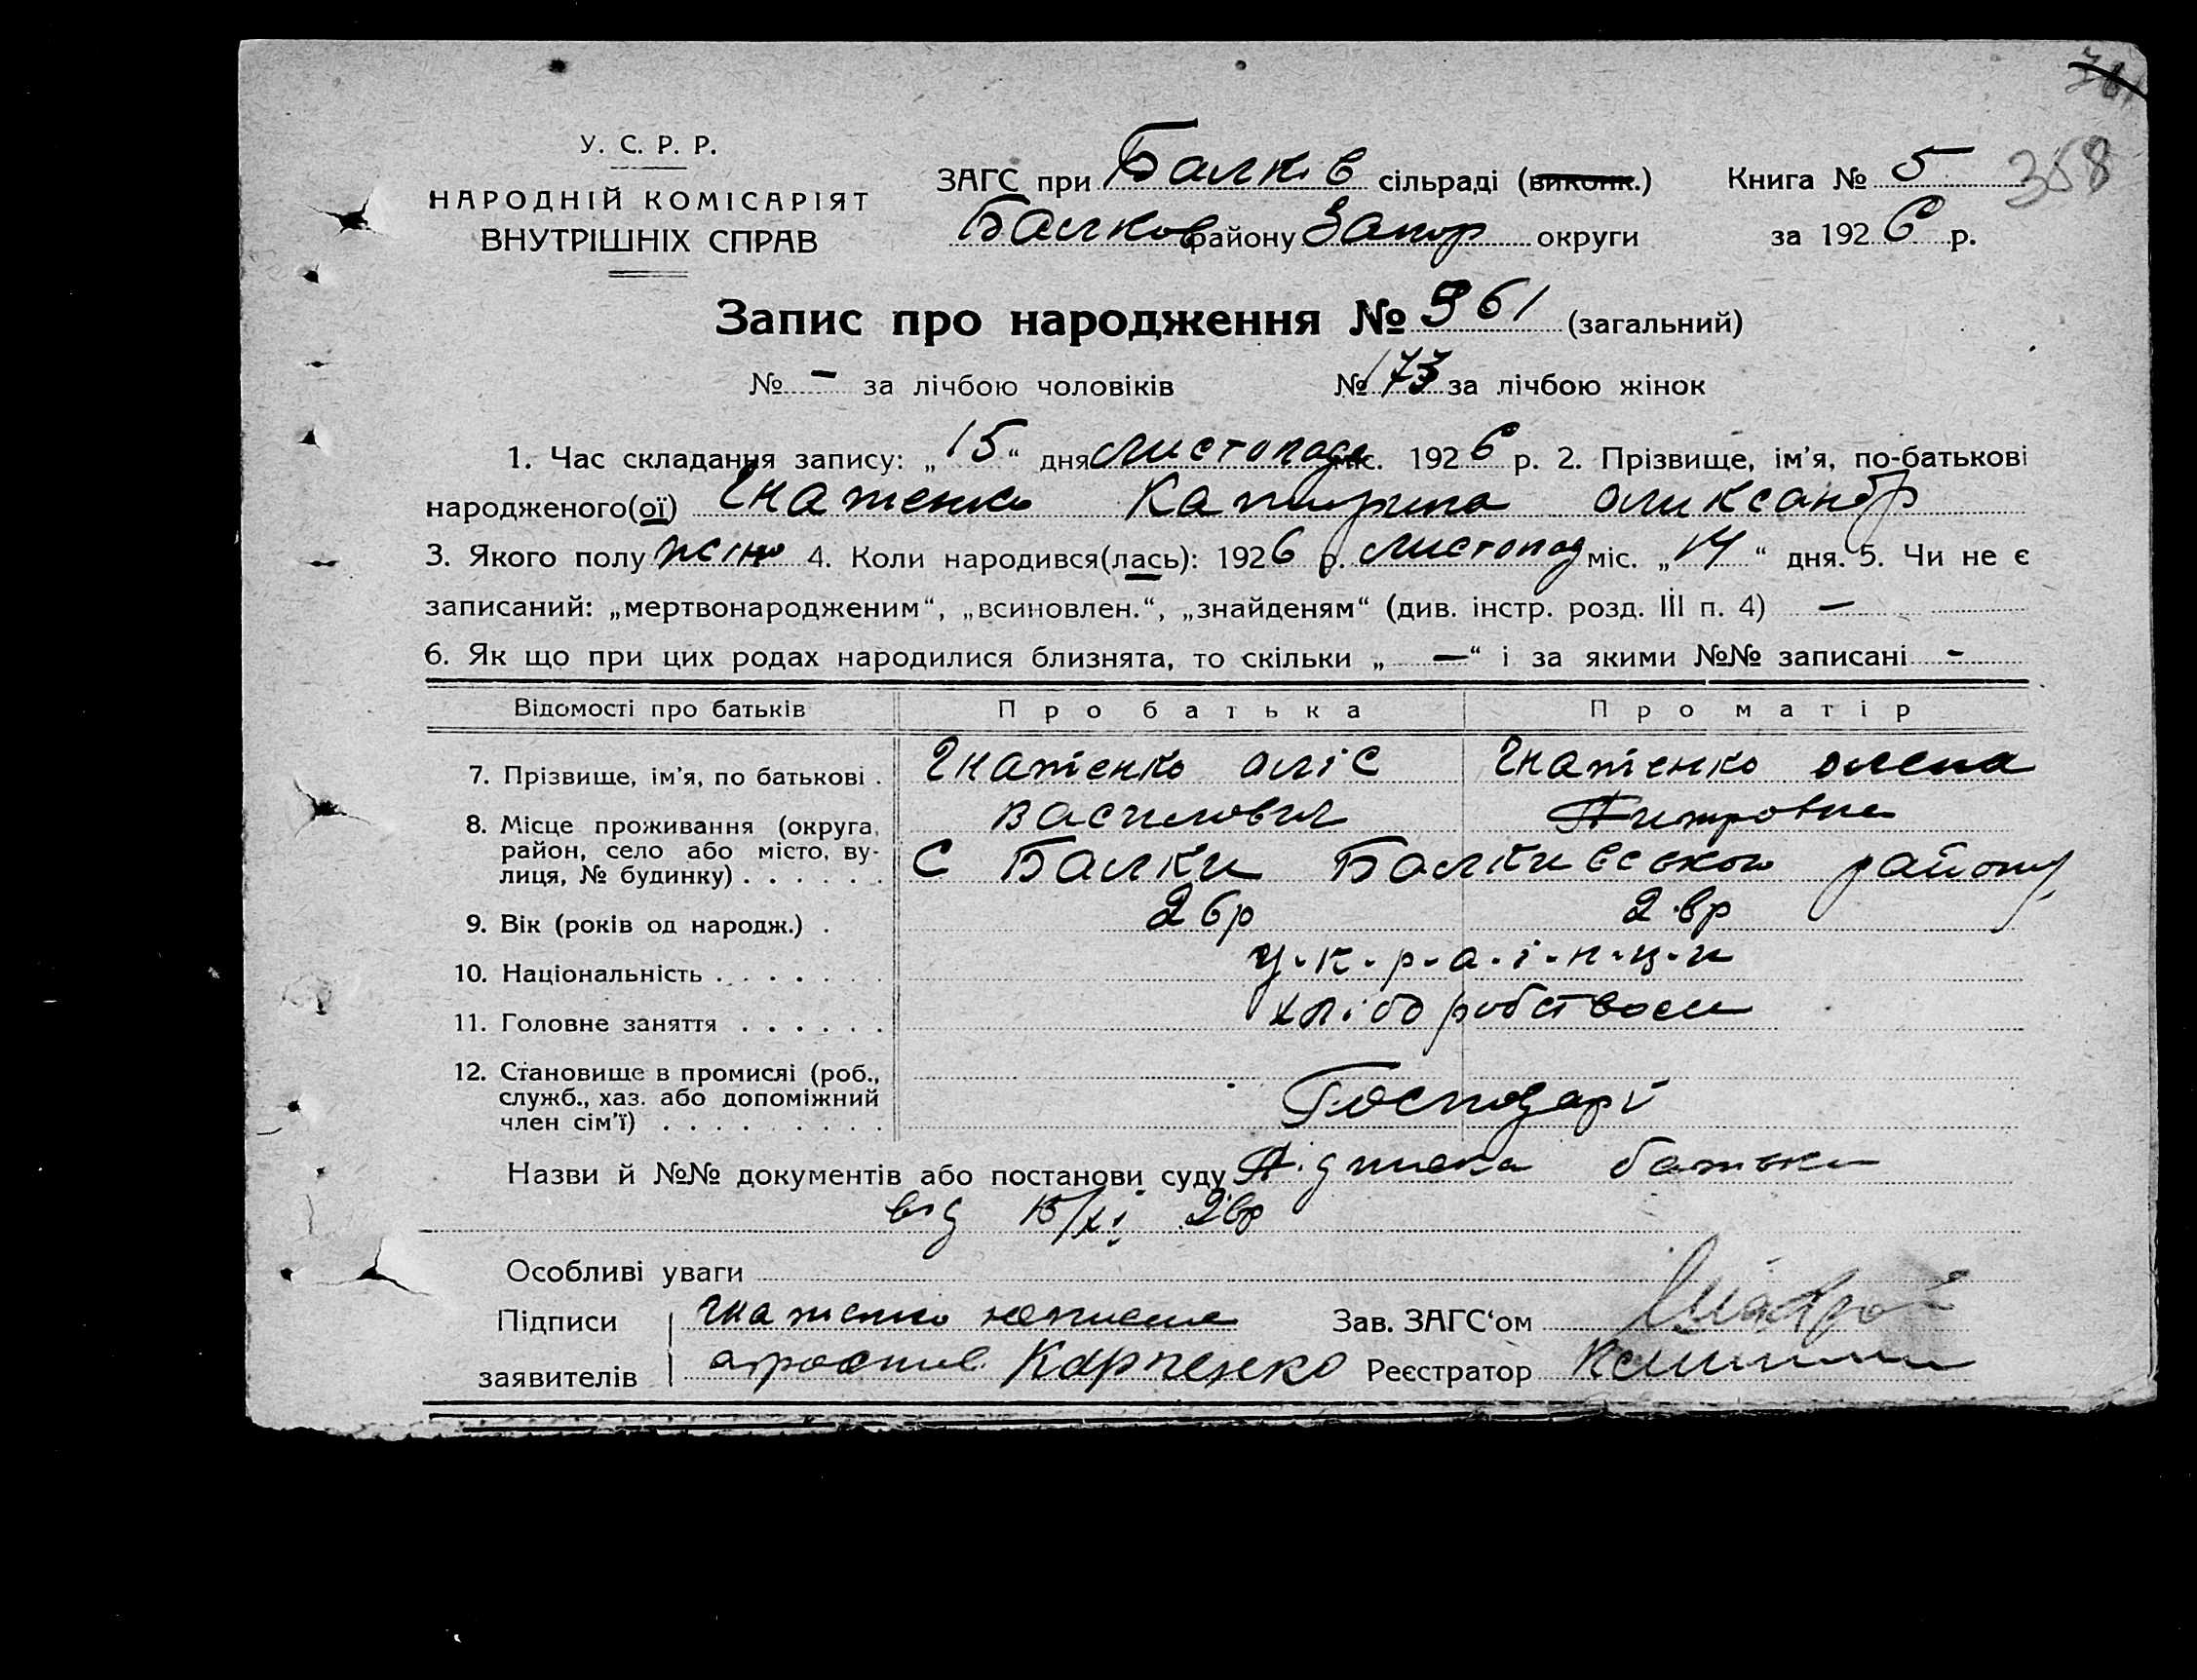 У. С. Р. Р.
НАРОДНІЙ КОМІСАРІЯТ
ВНУТРІШНІХ СПРАВ
ЗАГС при Балків сільраді (виконк.)
Балков району Запор округи
Книга № 5
за 1926 р.
358
Запис про народження № 361 (загальний)
№ - за лічбою чоловіків № 173 за лічбою жінок
1. Час складання запису: „15“ дня листопада міс. 1926 р. 2. Прізвище, ім'я, по-батькові
народженого(ої) Гнатенко Катирина Олександр
3. Якого полу жіно 4. Коли народився(лась): 1926 р. листопад міс. „14“ дня. 5. Чи не є
записаний: „мертвонародженим“, „всиновлен.“, „знайденям“ (див. інстр. розд. III п. 4) —
6. Як що при цих родах народилися близнята, то скільки „—“ і за якими №№ записані -
Відомості про батьків Про батька Про матір
7. Прізвище, ім'я, по батькові . Гнатенко Олєс Гнатенко Олена
Василович Питровна
8. Місце проживання (округа,
район, село або місто, ву-
лиця, № будинку) . . . . . . С Балки Балкивського району
9. Вік (років од народж.) . 26р 26р
10. Національність . . . . . . . у-к-р-а-ї-н-ц-и
11. Головне заняття . . . . . . хлібо робством
12. Становище в промислі (роб.,
служб., хаз. або допоміжний
член сім'ї) . . . . . . . . . Господарі
Назви й №№ документів або постанови суду Підписка батька
від 15/XI 26р
Особливі уваги
Підписи Гнатенко неписьме
заявителів Карпенко
Зав. ЗАГС'ом
Реєстратор